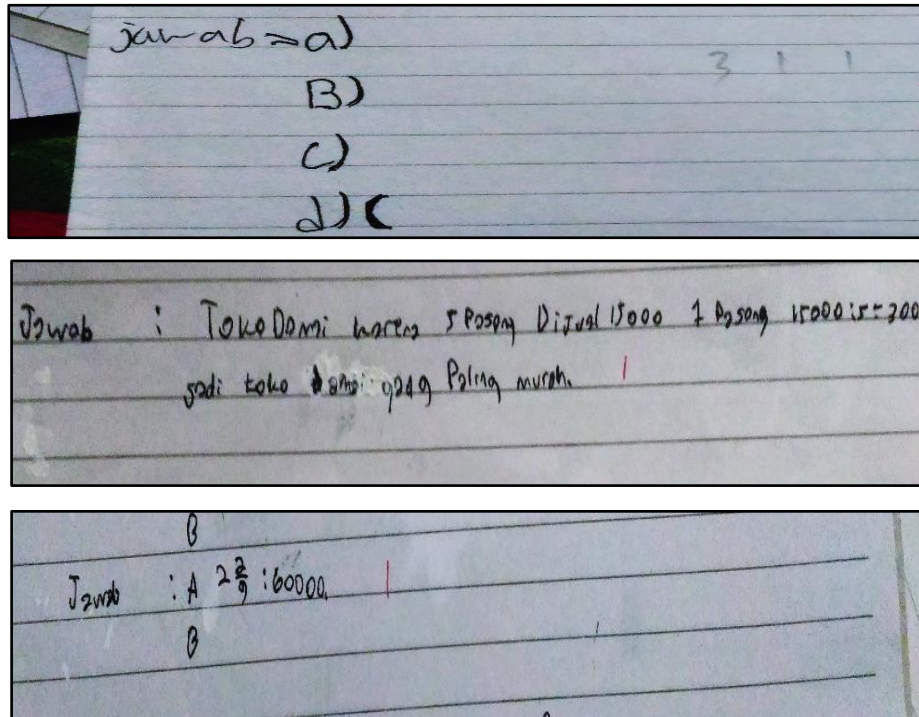 jawab = a)
3 1 1
B)
C)
d) (
Jawab : Toko Domi karena 5 Pasang Dijual 15000 1 Pasang 15000:5=300
jadi toko Damai yang Paling murah. 1
B
Jawab : A 2 2/9 : 60000. 1
B